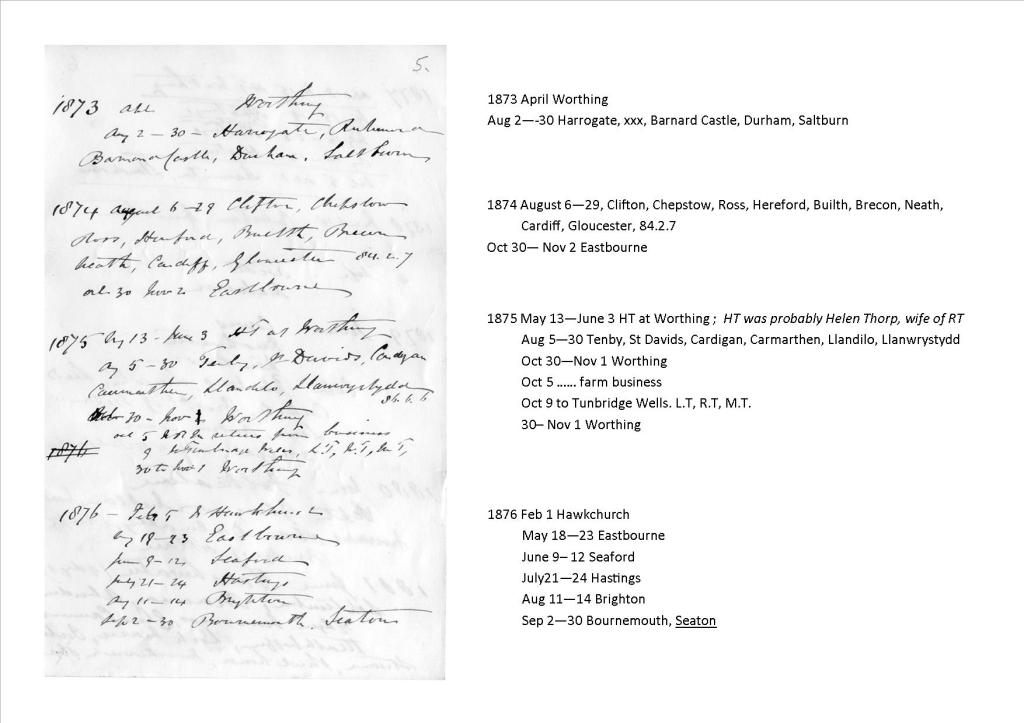 5.
1873 Worthing
Aug 2 – 30 – Harrogate, Richmond
Barnard Castle, Durham, Saltburn
1874 August 6 – 29 Clifton, Chepstow
Ross, Hereford, Builth, Brecon
Neath, Cardiff, Gloucester 84.2.7
Oct 30 Nov 2 Eastbourne
1875 13 – June 3 HT at Worthing
Aug 5 – 30 Tenby, St Davids, Cardigan
Caermarthen, Llandilo, Llanwrystydd
86.6.6
30 – Nov 1 Worthing
Oct 5 return from business
1876
9 to Tunbridge Wells, L.T, R.T, M.T,
30 to Nov 1 Worthing
1876 – Feb 5 Hawkchurch
18 – 23 Eastbourne
June 9 – 12 Seaford
July 21 – 24 Hastings
Aug 11 – 14 Brighton
Sep 2 – 30 Bournemouth, Seaton
1873 April Worthing
Aug 2—-30 Harrogate, xxx, Barnard Castle, Durham, Saltburn
1874 August 6—29, Clifton, Chepstow, Ross, Hereford, Builth, Brecon, Neath,
Cardiff, Gloucester, 84.2.7
Oct 30— Nov 2 Eastbourne
1875 May 13—June 3 HT at Worthing ; HT was probably Helen Thorp, wife of RT
Aug 5—30 Tenby, St Davids, Cardigan, Carmarthen, Llandilo, Llanwrystydd
Oct 30—Nov 1 Worthing
Oct 5 ...... farm business
Oct 9 to Tunbridge Wells. L.T, R.T, M.T.
30– Nov 1 Worthing
1876 Feb 1 Hawkchurch
May 18—23 Eastbourne
June 9– 12 Seaford
July21—24 Hastings
Aug 11—14 Brighton
Sep 2—30 Bournemouth, Seaton